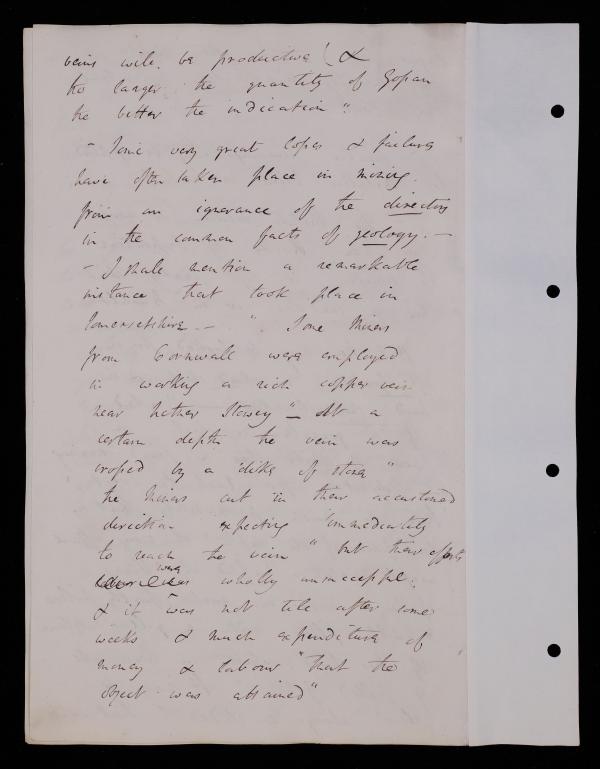 veins will. be productive! &
the larger the quantity of Gossan
the better the indication".
- Some very great losses & failures
have often taken place in mining.
from an ignorance of the directors
in the common facts of geology. -
- I shall mention a remarkable
instance that took place in
Somersetshire. - " Some Miners
from Cornwall were employed
in working a rich copper vein
near Nether Stowey" - At a
certain depth the vein was
crossed by a "dike of stone"
the Miners cut in their accustomed
direction expecting immediately
to reach the vein " but their efforts
were wholly unsuccessful.
& it was not till after some
weeks & much expenditure of
money & labour "that the
object was attained"